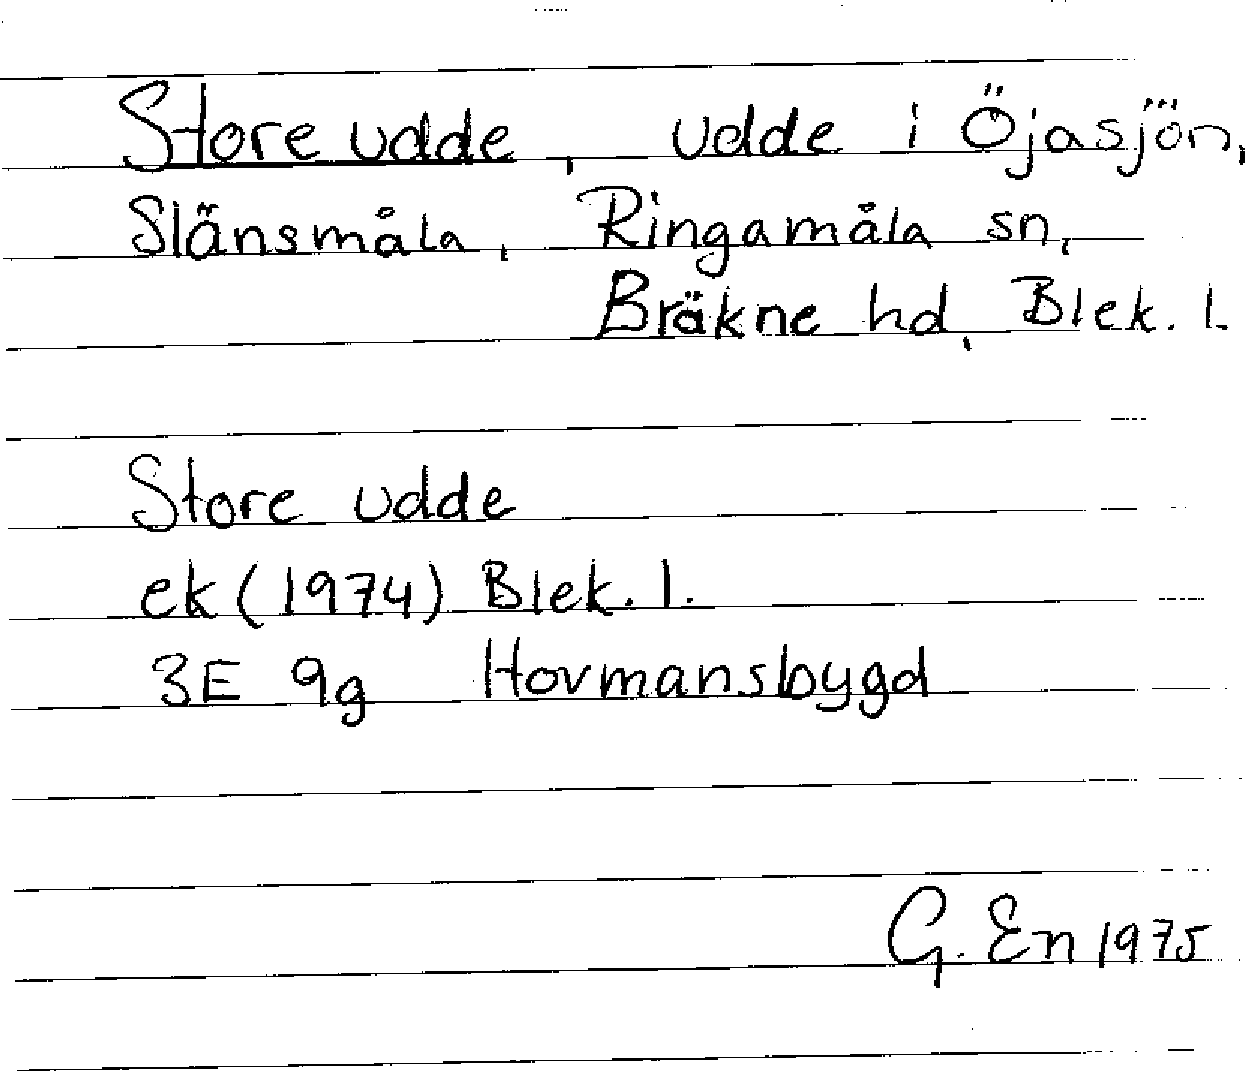 Store udde, udde i Öjasjön,
Slänsmåla, Ringamåla sn,
Bräkne hd, Blek. l.
Store udde
ek (1974) Blek. l.
3E 9g Hovmansbygd
G. En 1975